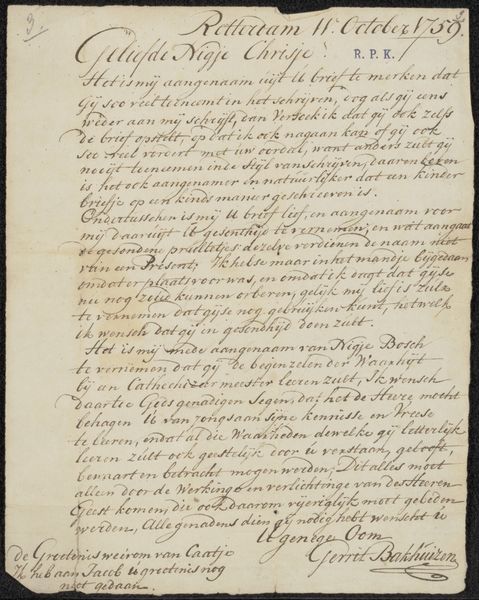 3.
Rotterdam 11 October 1759.
Geliefde Nigje Chrisje
R.P.K.
Het is mij aangenaam uijt U brief te merken dat
Gij soo veel toeneemt in het schrijven, dog als gij eens
weder aan mij schrijft, dan verseek ik dat gij ook zelfs
de brief opstelt, opdat ik ook nagaan kan of gij ook
soo veel vordert met uw oordeel, want anders zult gij
nooijt toeneemen in de stijl van schrijven, daar en boven
is het ook aangenamer en natuurlijker dat een kinder
briefje op een kinds manier geschreeven is.
Ondertusschen is mij U brief lief, en aangenaam voor
mij daar uijt U gesondhijd te verneemen; en wat aangaat
de gesondene prulletjes dezelve verdienen de naam niet
van een Present, Ik heb se maar in het mandje bijgedaan
omdat er plaats voor was, en omdat ik dagt dat gij se
nu nog zoud kunnen orberen, gelijk mij lief is zulx
te vernemen dat gij se nog gebruijken kunt, hetwelk
ik wensch dat gij in gesondhijd doen zult.
Het is mij mede aangenaam van Nigje Bosch
te vernemen dat gij de beginzelen der Waarhijt
bij een Catechezeer meester leeren zult, Ik wensch
daar toe Gods genadigen Segen, dat het de Heere mocht
behagen U van jongs aan sijne kennisse en Vreese
te leeren, en dat al die Waarheden dewelke gij letterlijk
leeren zult ook geestelijk door U verstaan, gelooft,
bewaart en betracht mogen werden; Dit alles moet
alleen door de Werking en verlichtinge van des Heeren
Geest komen, die ook daarom vijeriglijk moet gebeden
werden, Alle genadens die gij nodig hebt wenscht U
U genege Oom
Gerrit Bakhuizen
de Groetenis weerom van Caatje
Ik heb aan Jacob U groetenis nog
niet gedaan.